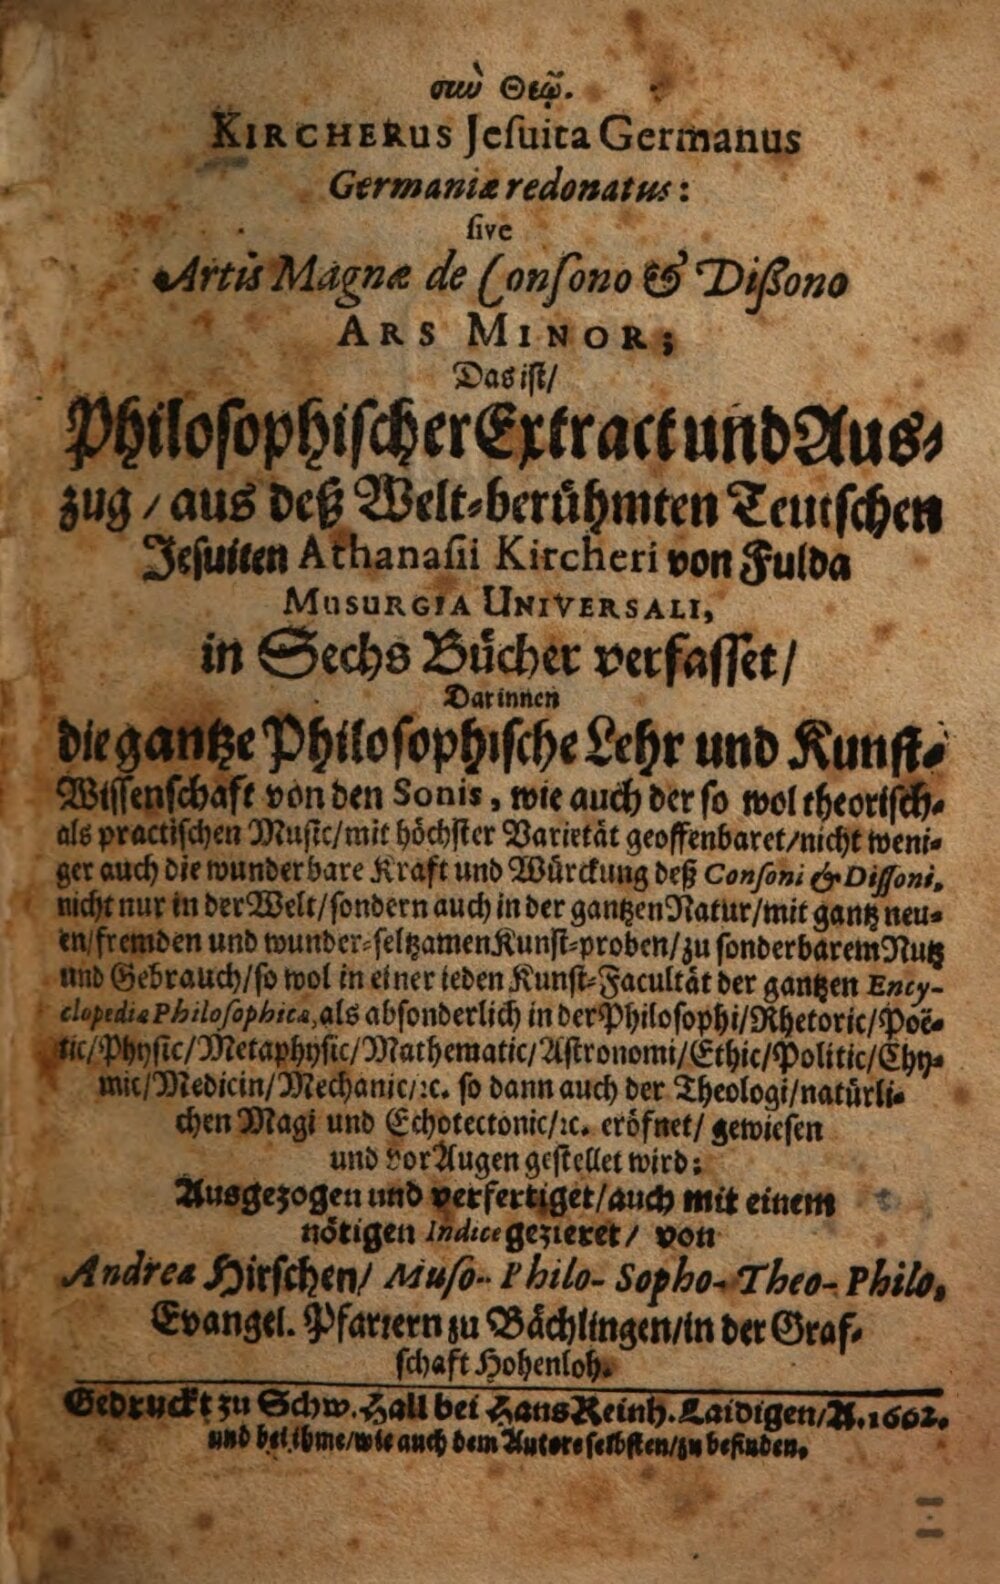 σὺν Θεῷ.
KIRCHERUS Jeſuita Germanus
Germaniæ redonatus:
ſive
Artis Magnæ de Conſono & Dißono
ARS MINOR;
Das iſt/
Philoſophiſcher Extract und Aus-
zug / aus deß Welt-berühmten Teutſchen
Jeſuiten Athanaſii Kircheri von Fulda
MUSURGIA UNIVERSALI,
in Sechs Bücher verfaſſet/
Darinnen
die gantze Philoſophiſche Lehr und Kunſt-
Wiſſenſchaft von den Sonis, wie auch der ſo wol theoriſch-
als practiſchen Muſic/mit höchſter Varietät geoffenbaret/nicht weni-
ger auch die wunderbare Kraft und Würckung deß Conſoni & Diſſoni,
nicht nur in der Welt/ſondern auch in der gantzen Natur/mit gantz neu-
en/fremden und wunder-ſeltzamen Kunſt-proben/zu ſonderbarem Nutz
und Gebrauch/ſo wol in einer ieden Kunſt-Facultät der gantzen Ency-
clopediæ Philoſophicæ, als abſonderlich in der Philoſophi/Rhetoric/Poë-
tic/Phyſic/Metaphyſic/Mathematic/Aſtronomi/Ethic/Politic/Chy-
mic/Medicin/Mechanic/ꝛc. ſo dann auch der Theologi/natürli-
chen Magi und Echotectonic/ꝛc. eröfnet/ gewieſen
und vor Augen geſtellet wird:
Ausgezogen und verfertiget/auch mit einem
nötigen Indice gezieret/ von
Andrea Hirſchen/ Muſo-Philo-Sopho-Theo-Philo,
Evangel. Pfarrern zu Bächlingen/in der Graf-
ſchaft Hohenloh.
Gedruckt zu Schw. Hall bei Hans Reinh. Laidigen/A. 1662.
und bei ihme/wie auch dem Autore ſelbſten/zu befinden.